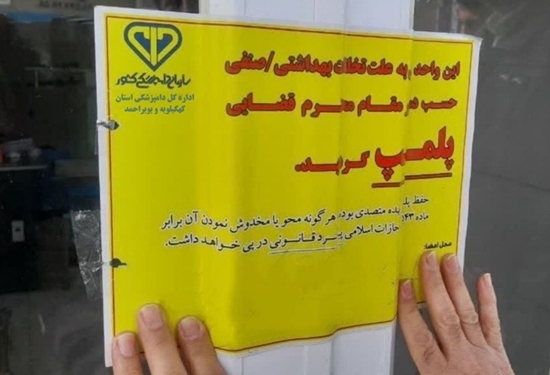 سازمان دامپزشکی کشور
اداره کل دامپزشکی استان
کهگیلویه و بویراحمد
این واحد به علت تخلف بهداشتی/صنفی
حسب دستور مقام محترم قضایی
پلمپ گردید.
حفظ پلمپ به عهده متصدی بوده هرگونه محو یا مخدوش نمودن آن برابر
ماده ۵۴۳ مجازات اسلامی پیگرد قانونی در پی خواهد داشت.
محل امضا: